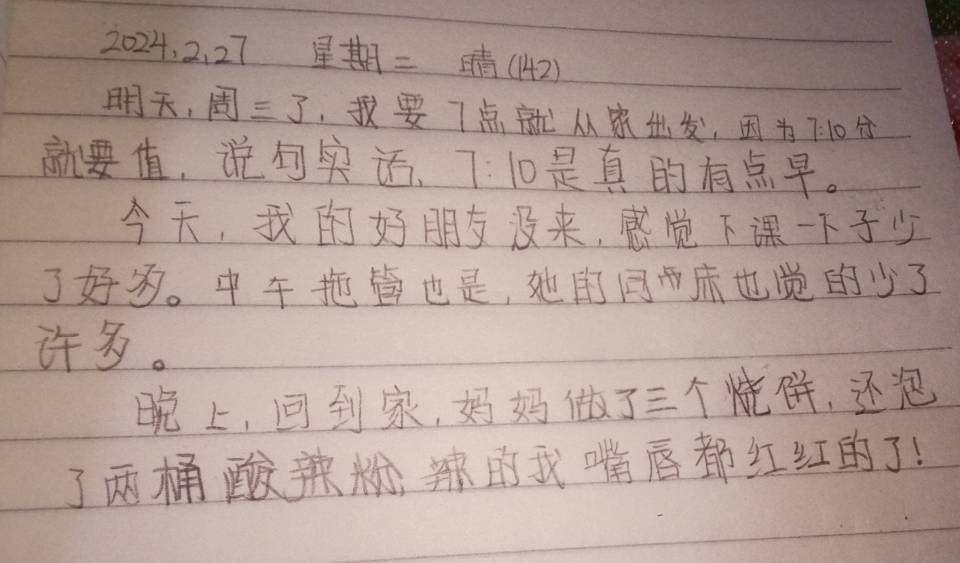 2024.2.27 星期二 晴(142)
明天,周三了,我要7点就从家出发,因为7:10分
就要值,说句实话,7:10是真的有点早。
今天,我的好朋友没来,感觉下课一下子少
了好多。中午拖管也是,她的同床也觉的少了
许多。
晚上,回到家,妈妈做了三个烧饼,还泡
了两桶酸辣粉,辣的我嘴唇都红红的了!